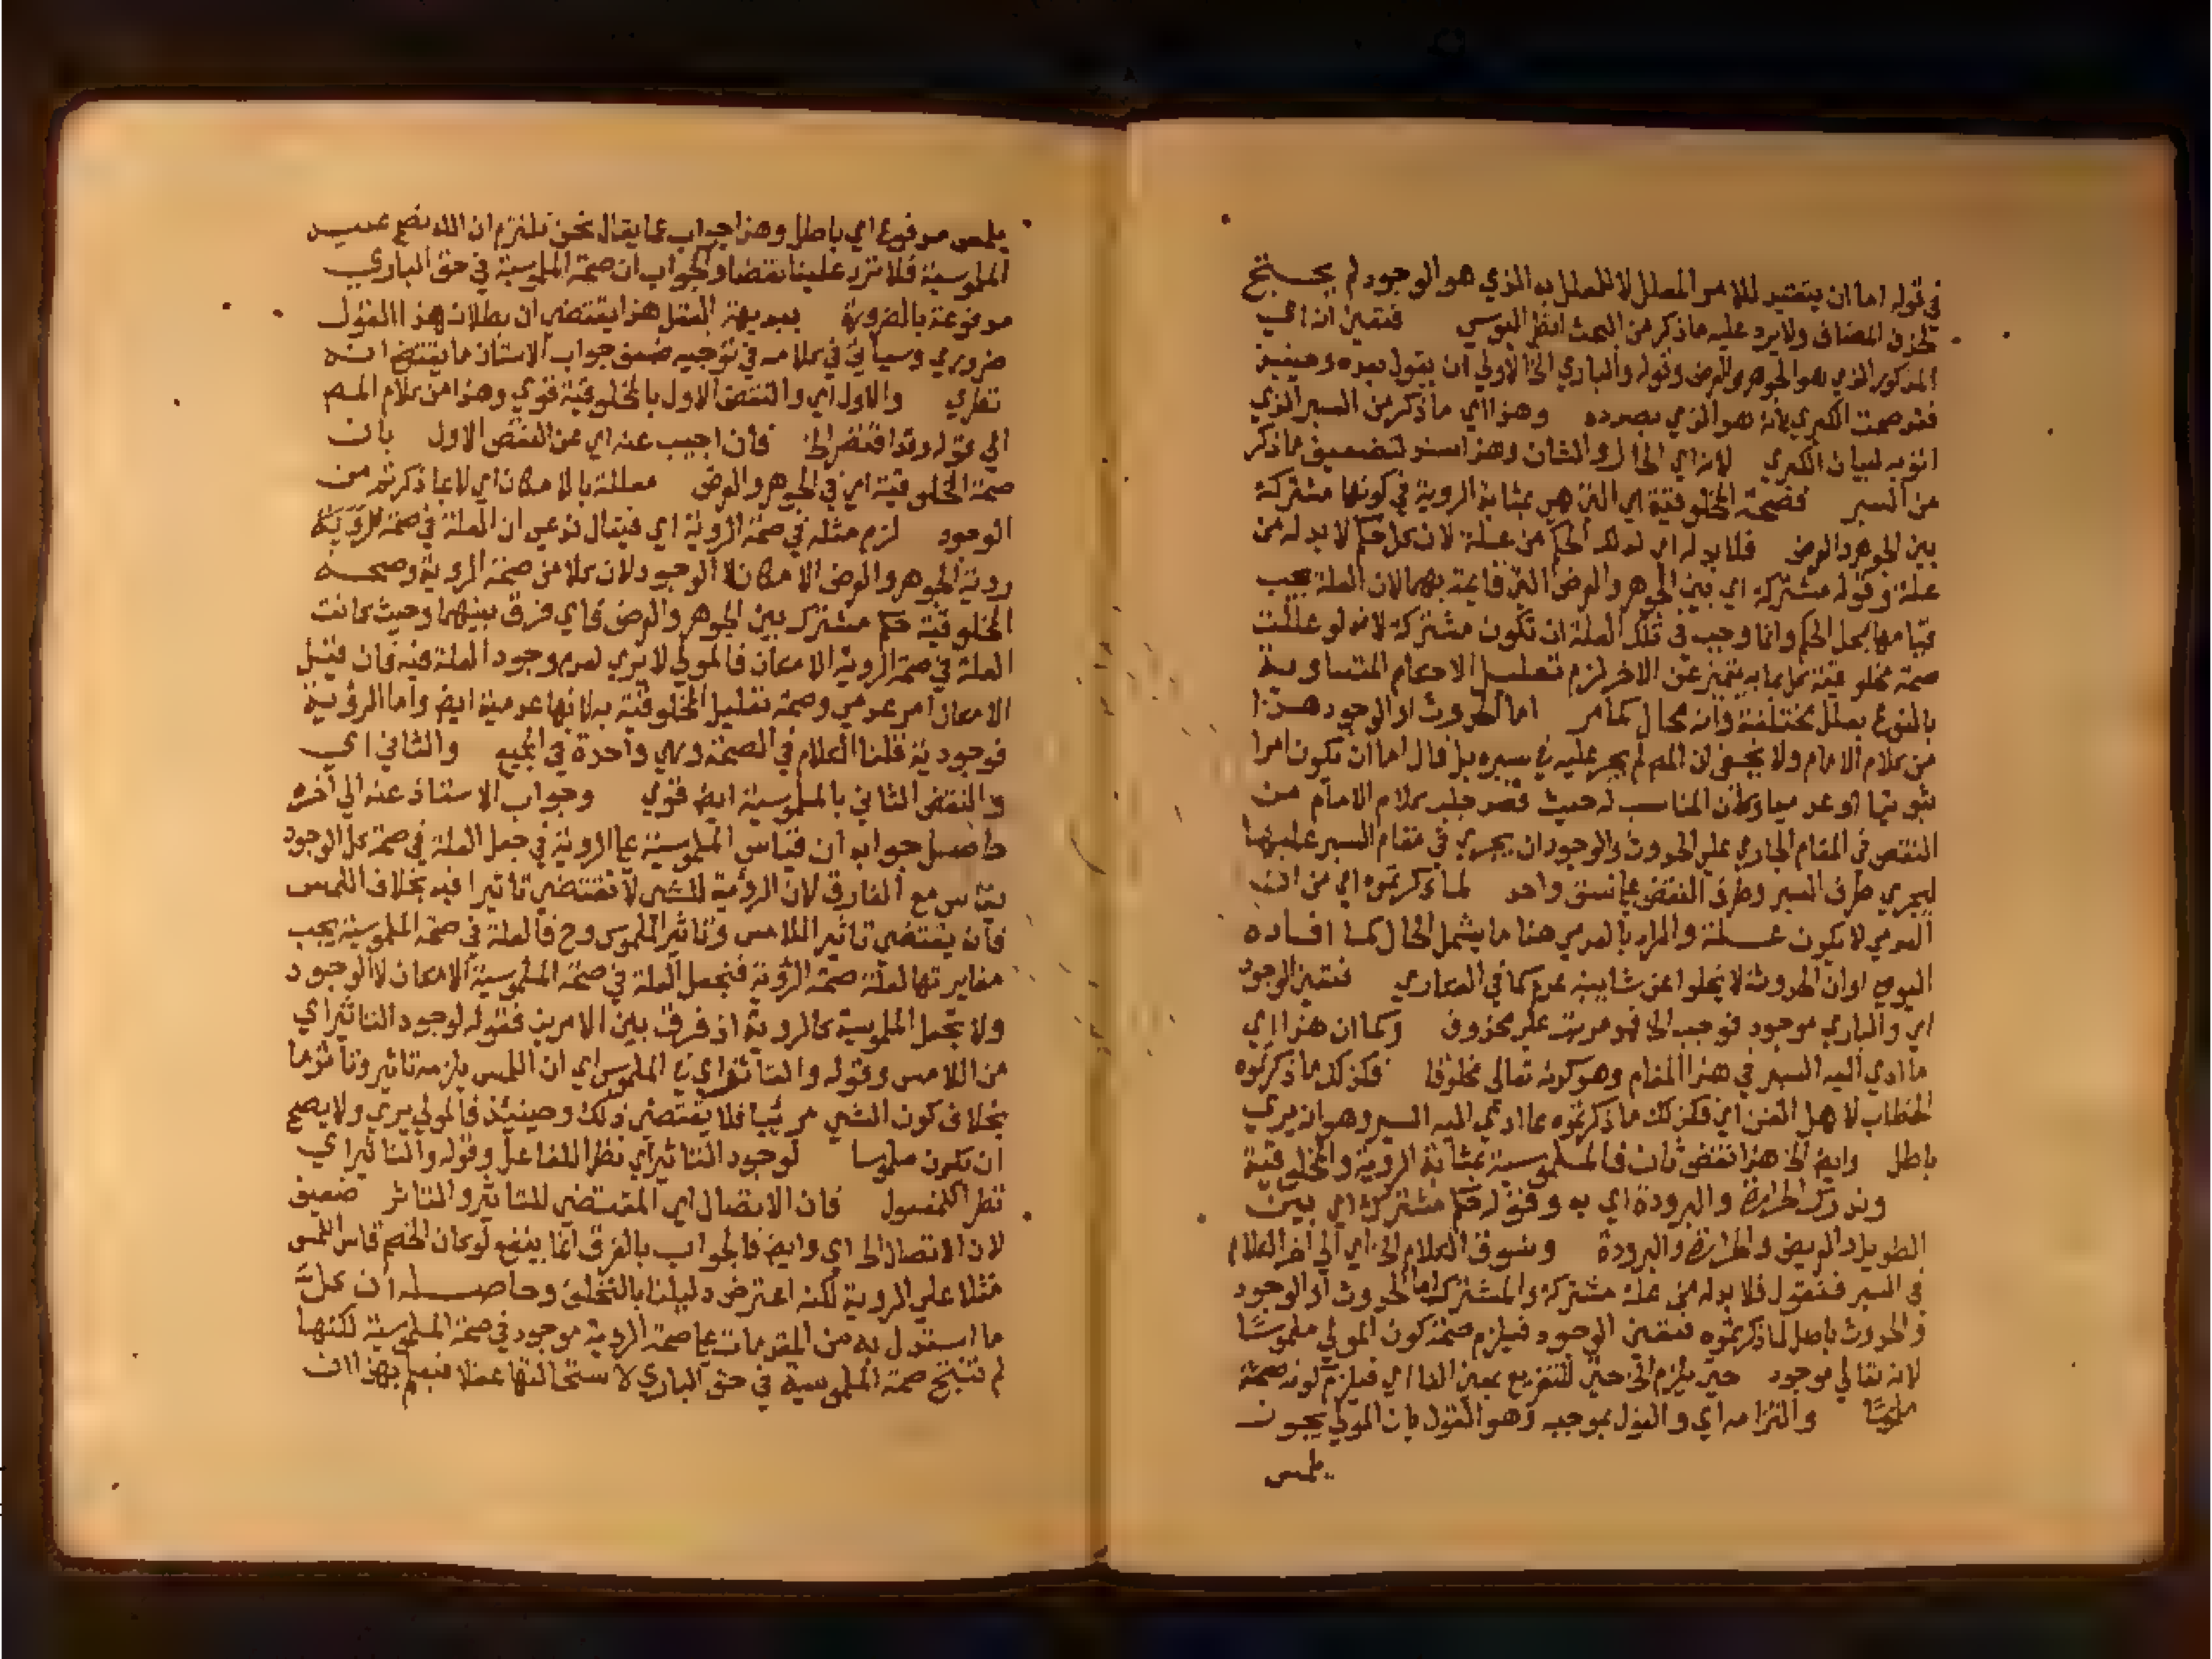 في قوله اما ان يتقيد للامر المعلل لا للمعلل به الذي هو الوجود لم يحتج
لحذف المضاف ولا يرد عليه ماذكر من البحث انظر اليوسي فتعين انه اي
المذكور الذي هو الجوهر والعرض وقوله والباري الخ الاولي ان يقول بعده وحينئذ
فقد صحت الكبري لانه هو الذي بصدده وهذا اي ماذكر من السبر الذي
اتوا به لبيان الكبري لانه اي الحال والشان وهذا سند لتضعيف ماذكر
من السبر فصحة المخلوقية اي التي هي بمثابة الروية في كونها مشتركة
بين الجوهر والعرض فلا بد له اي لذلك الحكم من علة لان كل حكم لا بد له من
علة وقوله مشتركة اي بين الجوهر والعرض التي قايمة بهما لان العلة يجب
قيامها بمحل الحكم وانما وجب في تلك العلة ان تكون مشتركة لانه لو عللت
صحة مخلوقية كل بما به يتميز عن الاخر لزم تعليل الاحكام المتساوية
بالنوع بعلل مختلفة وانه محال كمامر اما الحدوث او الوجود هذا
من كلام الامام ولا يخفي ان المص لم يجر عليه في سبره بل قال اما ان يكون امرا
ثبوتيا او عدميا وكان المناسب له حيث قصد جلب كلام الامام من
النقض في المقام الجاري علي الحدوث والوجود ان يجري في مقام السبر عليهما
ليجري طرف السبر وطرف النقض علي نسق واحد لما ذكرتموه اي من ان
العدمي لا يكون علة والمراد بالعدمي هنا ما يشمل الحال كما افاده
اليوسي او ان الحدوث لا يخلوا عن شايبة عدم كما في العكاري فتعين الوجود
اي والباري موجود فوجب الخ فهو مرتب علي محذوف وكما ان هذا اي
ما ادي اليه السبر في هذا المقام وهو كونه تعالي مخلوقا فكذلك ما ذكرتموه
الخطاب لاهل الفن اي فكذلك ما ذكرتموه مما ادي اليه السبر وهو انه يري
باطل وايض الخ هذا نقض ثان فالملموسية بمثابة الروية والمخلوقية
وندرك الحرارة والبرودة اي به وقوله حكم مشترك اي بين
الطويل والعريض والحرارة والبرودة وسوق الكلام الخ اي الي اخر الكلام
في السبر فتقول فلا بد له من علة مشتركة والمشترك اما الحدوث او الوجود
والحدوث باطل لما ذكرتموه فتعين الوجود فيلزم صحة كون المولي ملموسًا
لانه تعالي موجود حين يلزم الخ حين للتفريع بمعني الفا اي فيلزم كونه صحة
ملموسًا والتزامه اي والقول بموجبه وهو القول بان المولي يجوز ان
يلمس
يلمس مدفوع اي باطل وهذا جواب عما يقال نحن نلتزم ان الله تصح عليه
الملموسية فلا ترد علينا نقضا والجواب ان صحة الملموسية في حق الباري
مدفوعة بالضرورة ببديهة العقل هذا يقتضي ان بطلان هذا القول
ضروري وسياتي في كلامه في توجيه ضعف جواب الاستاذ ما يقتضي انه
نظري والاول اي والنقض الاول بالمخلوقية قوي وهذا من كلام المص
الي قوله وقد اقتضر الخ فان اجيب عنه اي عن النقض الاول بان
صحة المخلوقية اي في الجوهر والعرض معللة بالامكان اي لا بما ذكرتم من
الوجود لزم مثله في صحة الروية اي فيقال ندعي ان العلة في صحة الرؤية
روية الجوهر والعرض الامكان لا الوجود لان كلا من صحة الروية وصحة
المخلوقية حكم مشترك بين الجوهر والعرض فاي فرق بينهما وحيث كانت
العلة في صحة الروية الامكان فالمولي لا يري لعدم وجود العلة فيه فان قيل
الامكان امر عدمي وصحة تعليل المخلوقية به لانها عدمية ايض واما الرؤية
فوجودية قلنا الكلام في الصحة وهي واحدة في الجميع والثاني اي
والنقض الثاني بالملموسية ايض قوي وجواب الاستاذ عنه الي اخره
حاصل جوابه ان قياس الملموسية علي الروية في جعل العلة في صحة كل الوجود
قياس مع الفارق لان الرؤية للشي لا تقتضي تاثيرا فيه بخلاف اللمس
فانه يقتضي تاثير اللامس وتاثر الملموس وح فالعلة في صحة الملموسية يجب
مغايرتها لعلة صحة الرؤية فنجعل العلة في صحة الملموسية الامكان لا الوجود
ولا تجعل الملموسية كالروية اذ فرق بين الامرين فقوله لوجود التاثير اي
من اللامس وقوله والتاثر اي في الملموس اي ان اللمس يلزمه تاثير وتاثر ما
بخلاف كون الشي مرئيا فلا يقتضي ذلك وحينئذ فالمولي يري ولا يصح
ان يكون ملموسا لوجود التاثير اي نظرا للفاعل وقوله والتاثر اي
نظرا للمفعول فان الاتصال اي المقتضي للتاثير والتاثر ضعيف
لان الاتصال الخ اي وايض فالجواب بالفرق انما ينفع لو كان الخصم قاس اللمس
مثلا علي الروية لكنه اعترض دليلنا بالتخلف وحاصله ان كلَّ
ما استدل به من المقدمات علي صحة الروية موجود في صحة الملموسية لكنها
لم تنتج صحة الملموسية في حق الباري لاستحالتها عقلا فيعلم بهذا ان